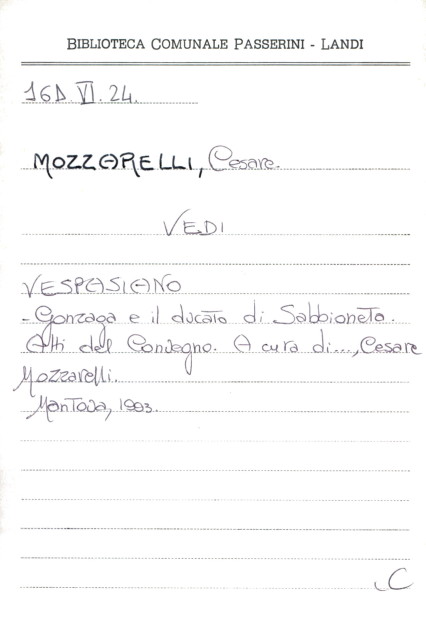 BIBLIOTECA COMUNALE PASSERINI - LANDI
16D.VI.24.
MOZZARELLI, Cesare.
VEDI
VESPASIANO
- Gonzaga e il ducato di Sabbioneta.
Atti del Convegno. A cura di..., Cesare
Mozzarelli.
Mantova, 1993.
C